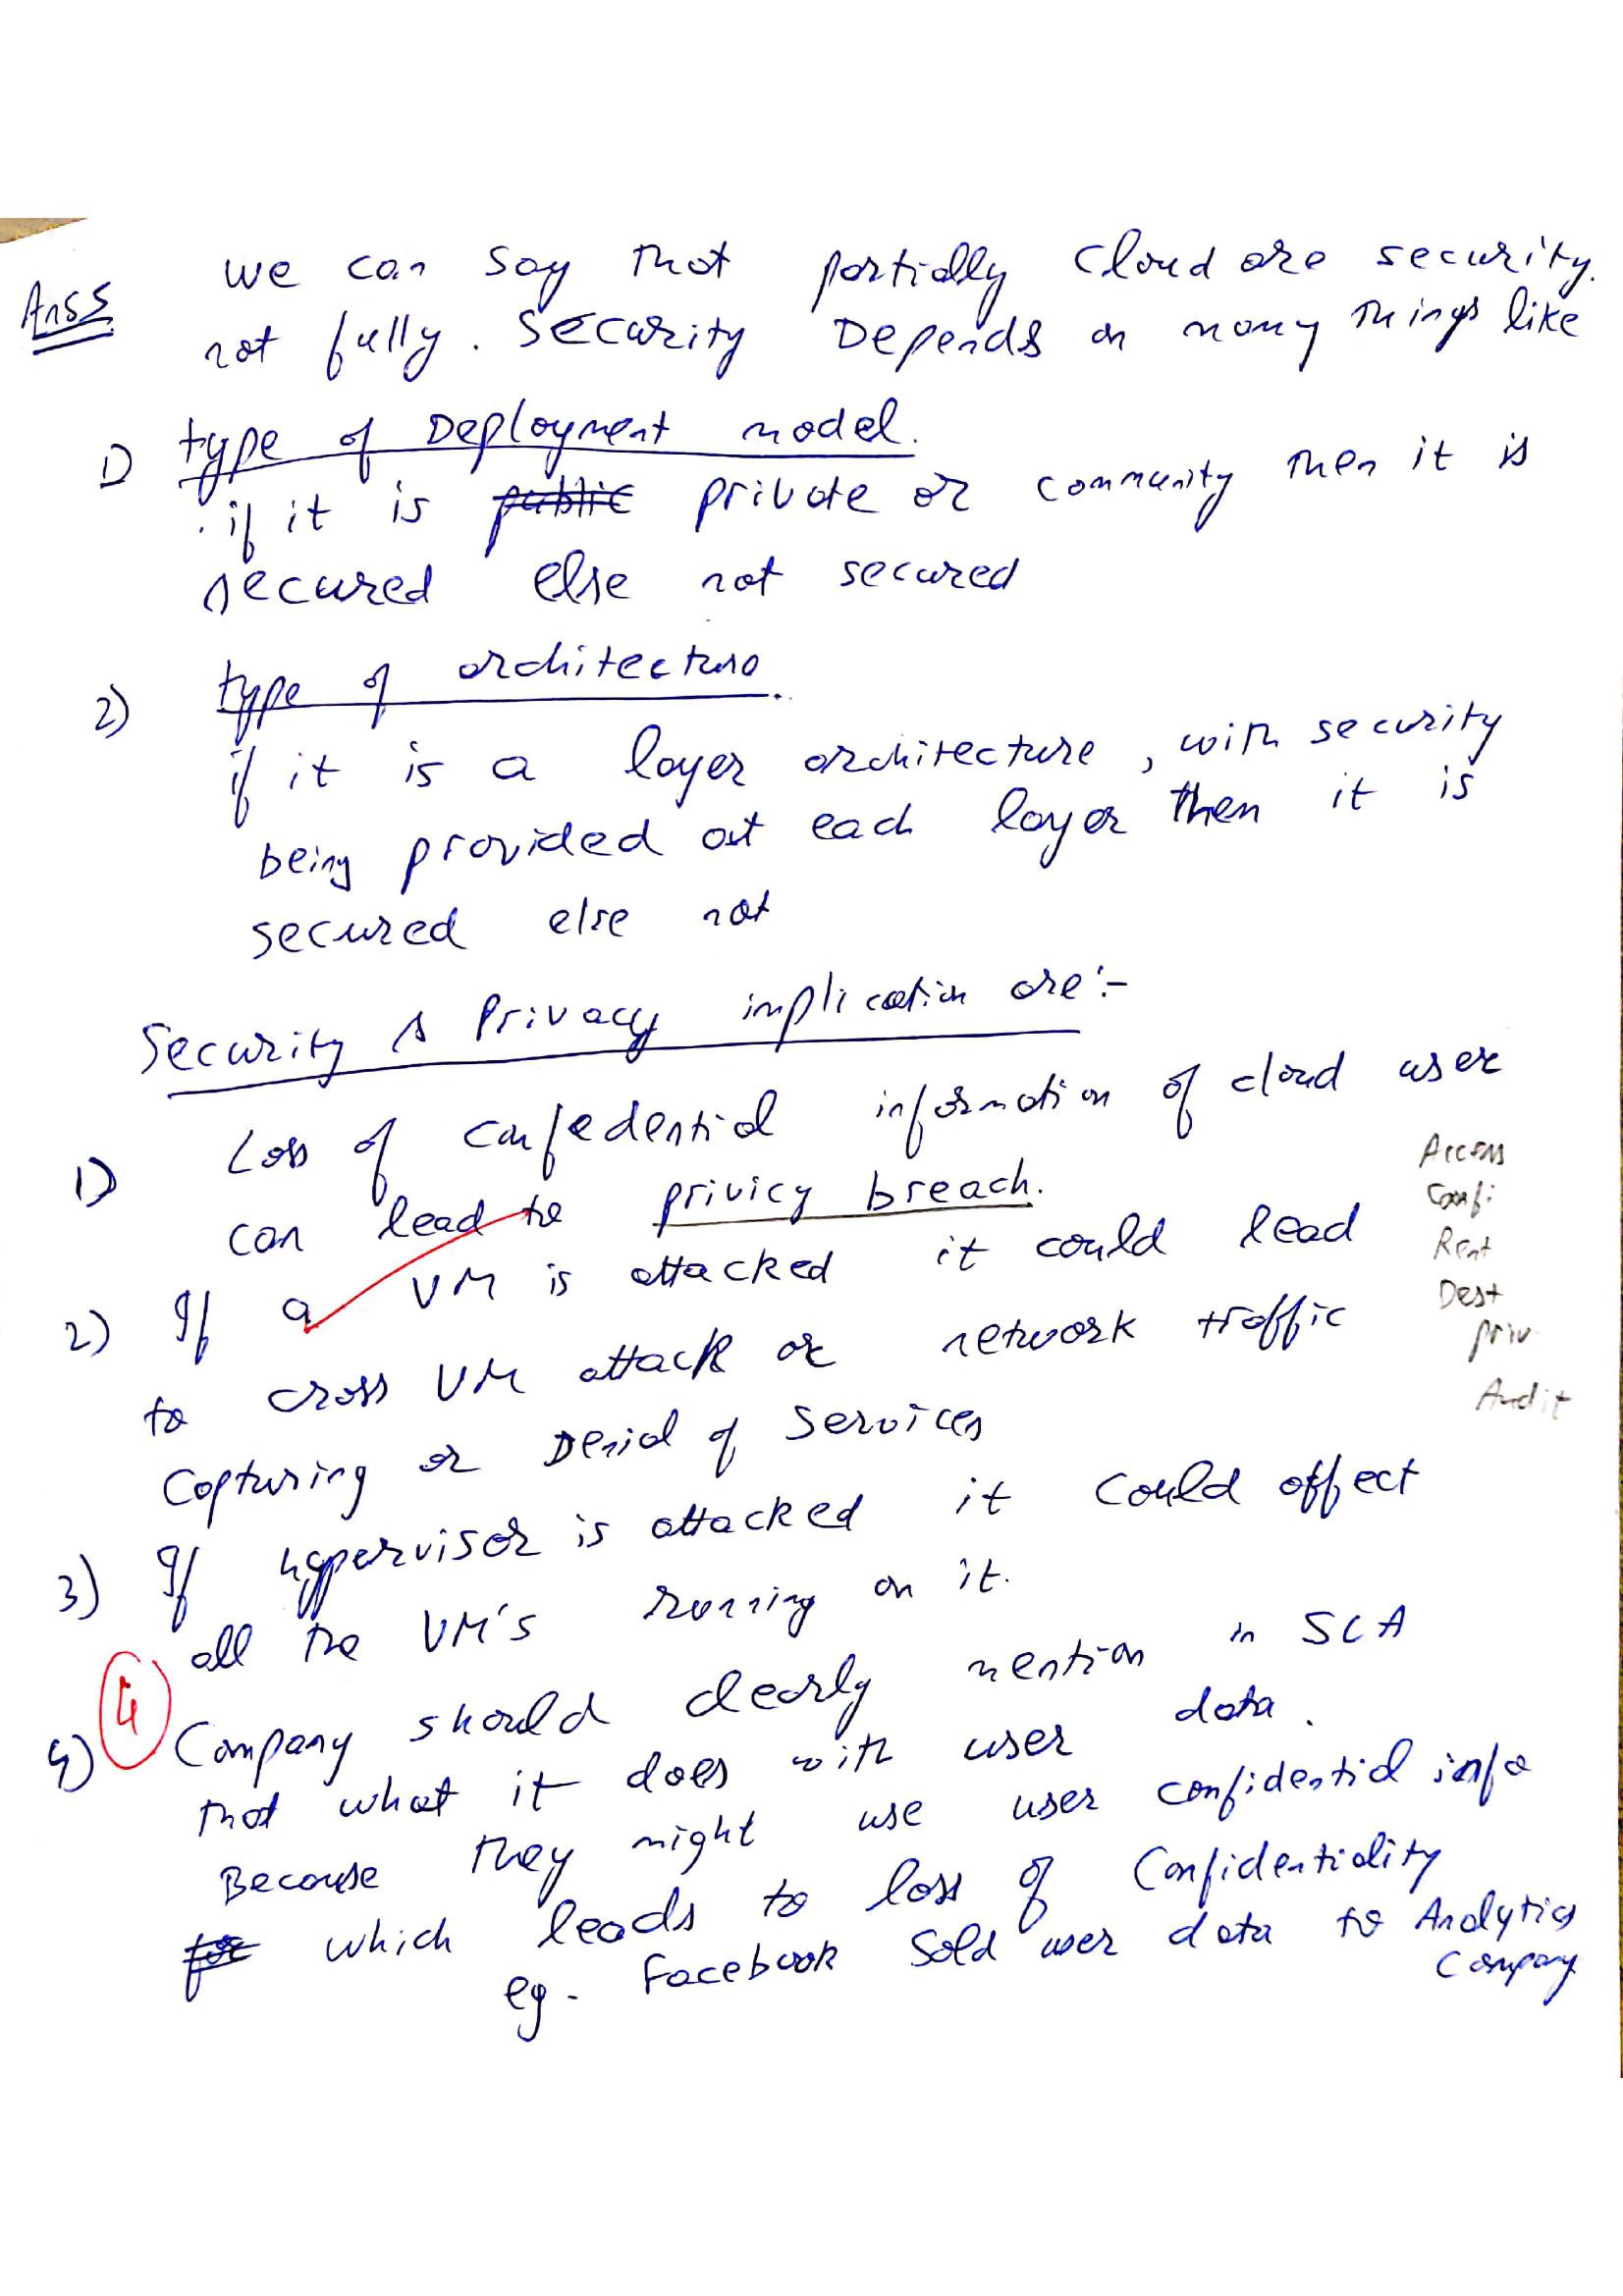 Ans 5
we can say that partially cloud are security.
not fully. Security Depends on many things like
1) type of Deployment model.
. if it is public private or community then it is
secured else not secured
2) type of architecture.
if it is a layer architecture, with security
being provided at each layer then it is
secured else not
Security & Privacy implication are:-
1) Loss of confedential information of cloud user
can lead to privicy breach.
2) If a VM is attacked it could lead
to cross VM attack or network traffic
Capturing or Denial of Services
3) If hypervisor is attacked it could affect
all the VM's running on it.
4) Company should clearly mention in SLA
that what it does with user data.
Because they might use user confidential info
for which leads to loss of Confidentiality
eg. Facebook Sold user data to Analytics
Company
Access
Confi
Rent
Dest
priv
Audit